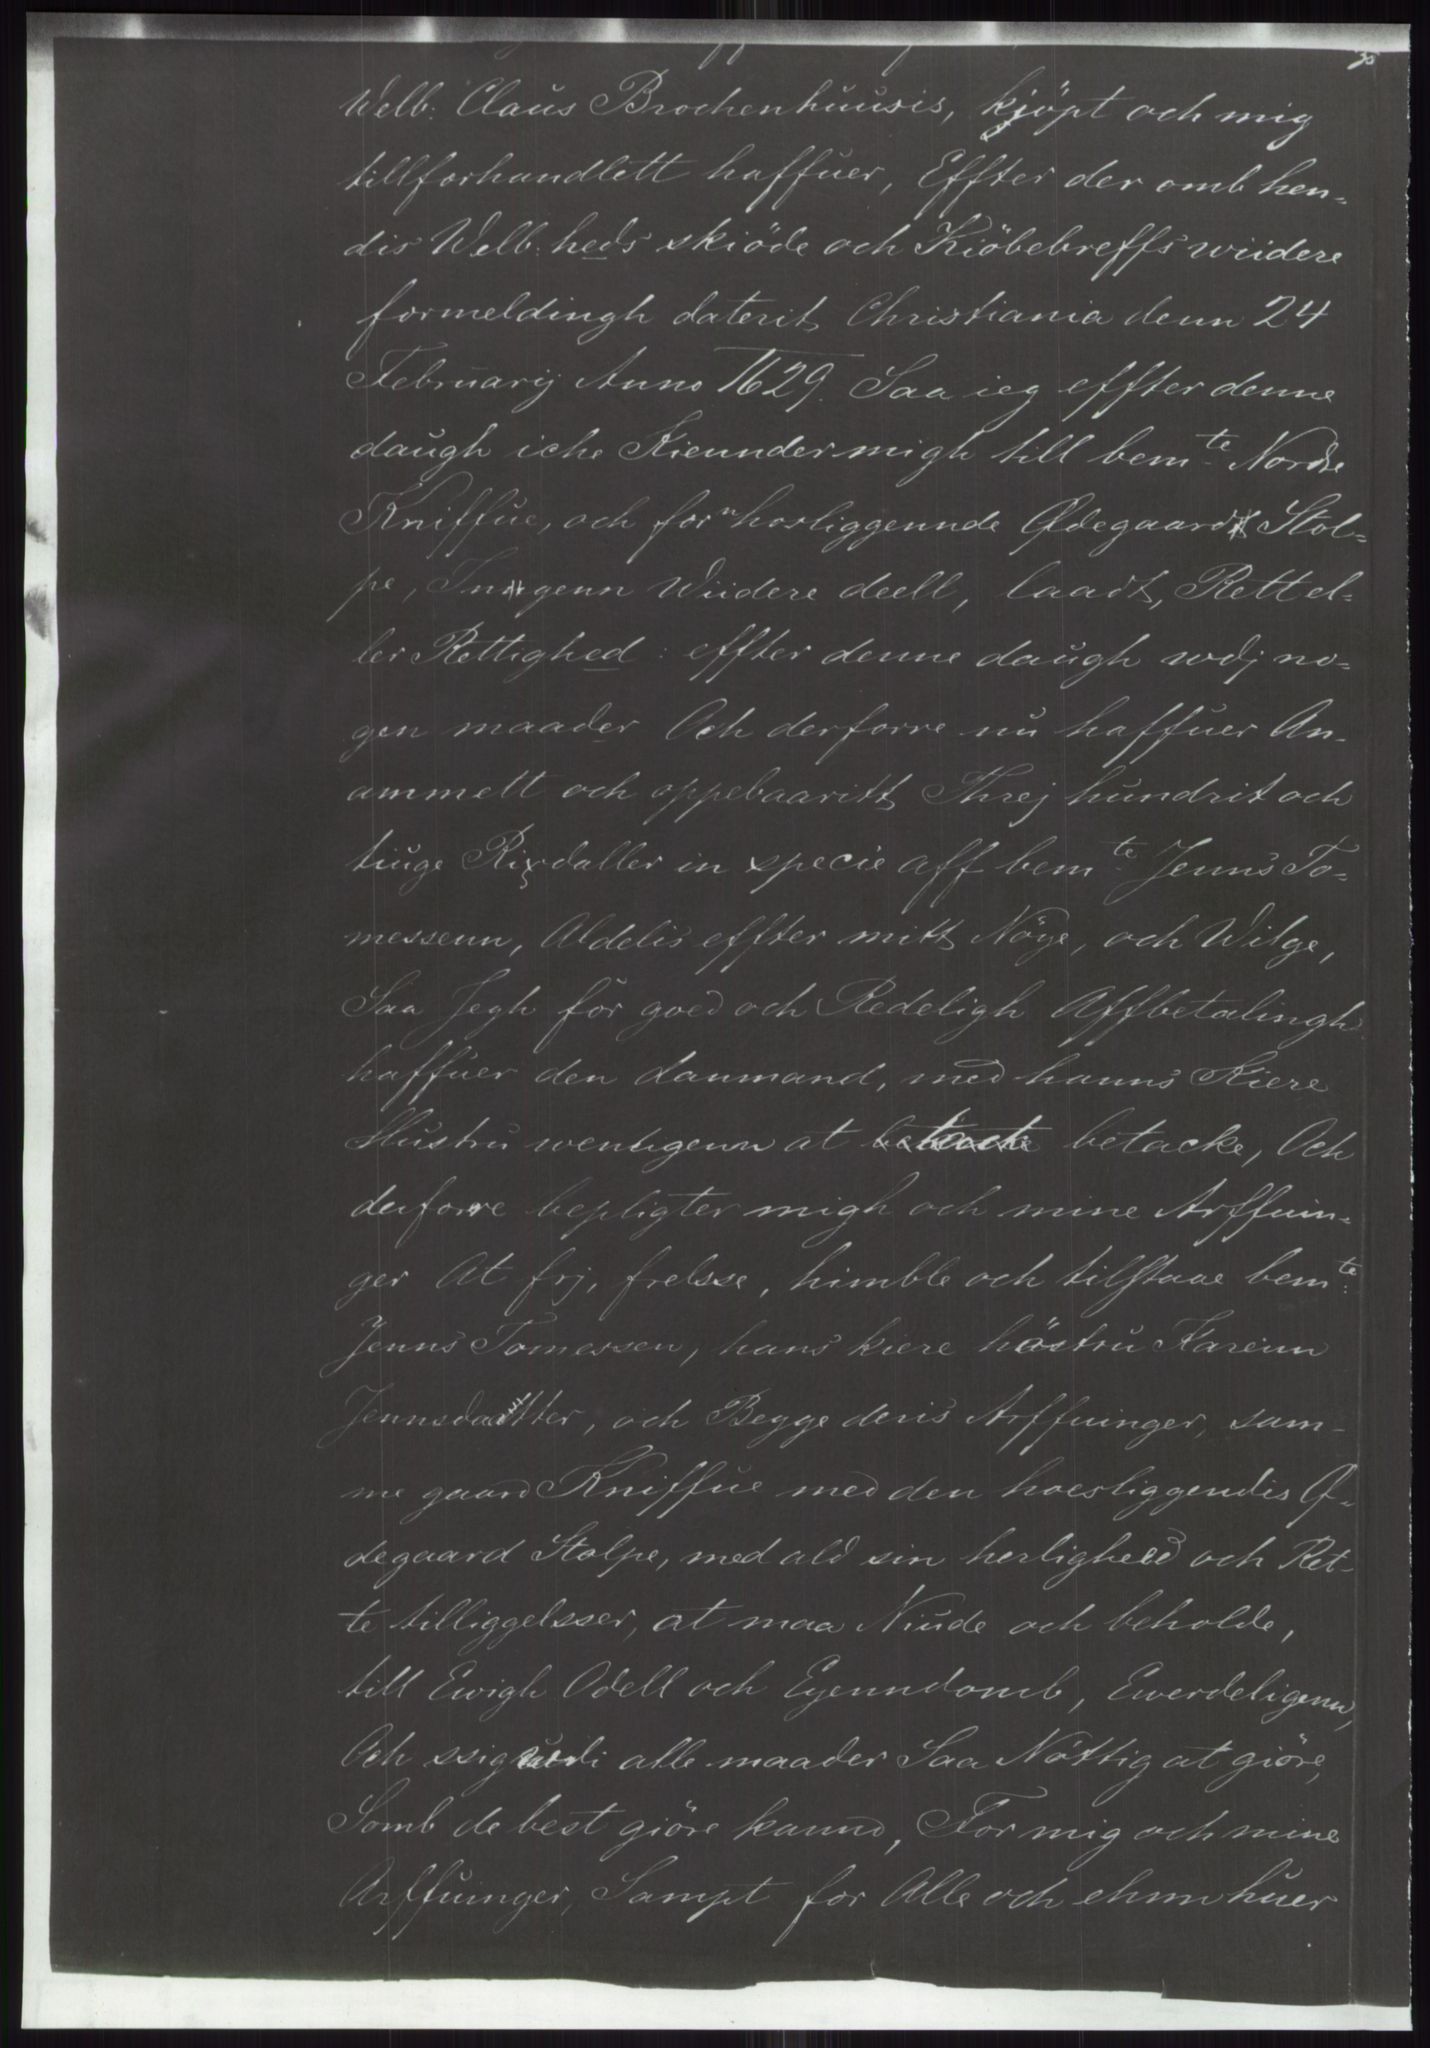 Welb. Claus Brochenhuusis, kjöpt och mig
tillforhandlett haffuer, Effter der omb hen-
dis Welb:heds skiöde och Kiöbebreffs wiidere
formeldingh daterit Christiania denn 24
Februarij Anno 1629. Saa ieg effter denne
daugh iche Kiennder migh till bemte Nordre
Kniffue, och forn hosliggennde Ødegaard Stol-
pe, Inngenn Wiidere deell, laadt, Rett el-
ler Rettighed: effter denne daugh wdj no-
gen maader Och derforre nu haffuer An-
ammett och oppebaaritt Threj hundrit och
tiuge Rixdaller in specie aff bemte Jenns To-
messenn, Aldelis effter mitt Nöye, och Wilge,
Saa Jegh for goed och Redeligh Affbetalingh
haffuer den danmand, med hanns Kiere
Hustru wenligenn at betacke, Och
derforre bepligter migh och mine Arffuin-
ger At frj, frelsse, himble och tilstaae bemte
Jenns Tomessen, hans kiere höstru Karenn
Jennsdaatter, och Begge deris Arffuinger, sam-
me gaard Kniffue med den hoesliggendis Ø-
degaard Stolpe, med ald sin herlighed och Ret-
te tilliggelsser, at maa Niude och beholde,
till Ewigh Odell och Eyenndomb, Ewerdeligenn,
Och ssig udi alle maader Saa Nöttig at giöre,
Somb de best giöre kannd, For mig och mine
Arffuinger, Sampt for Alle och ehnn huer